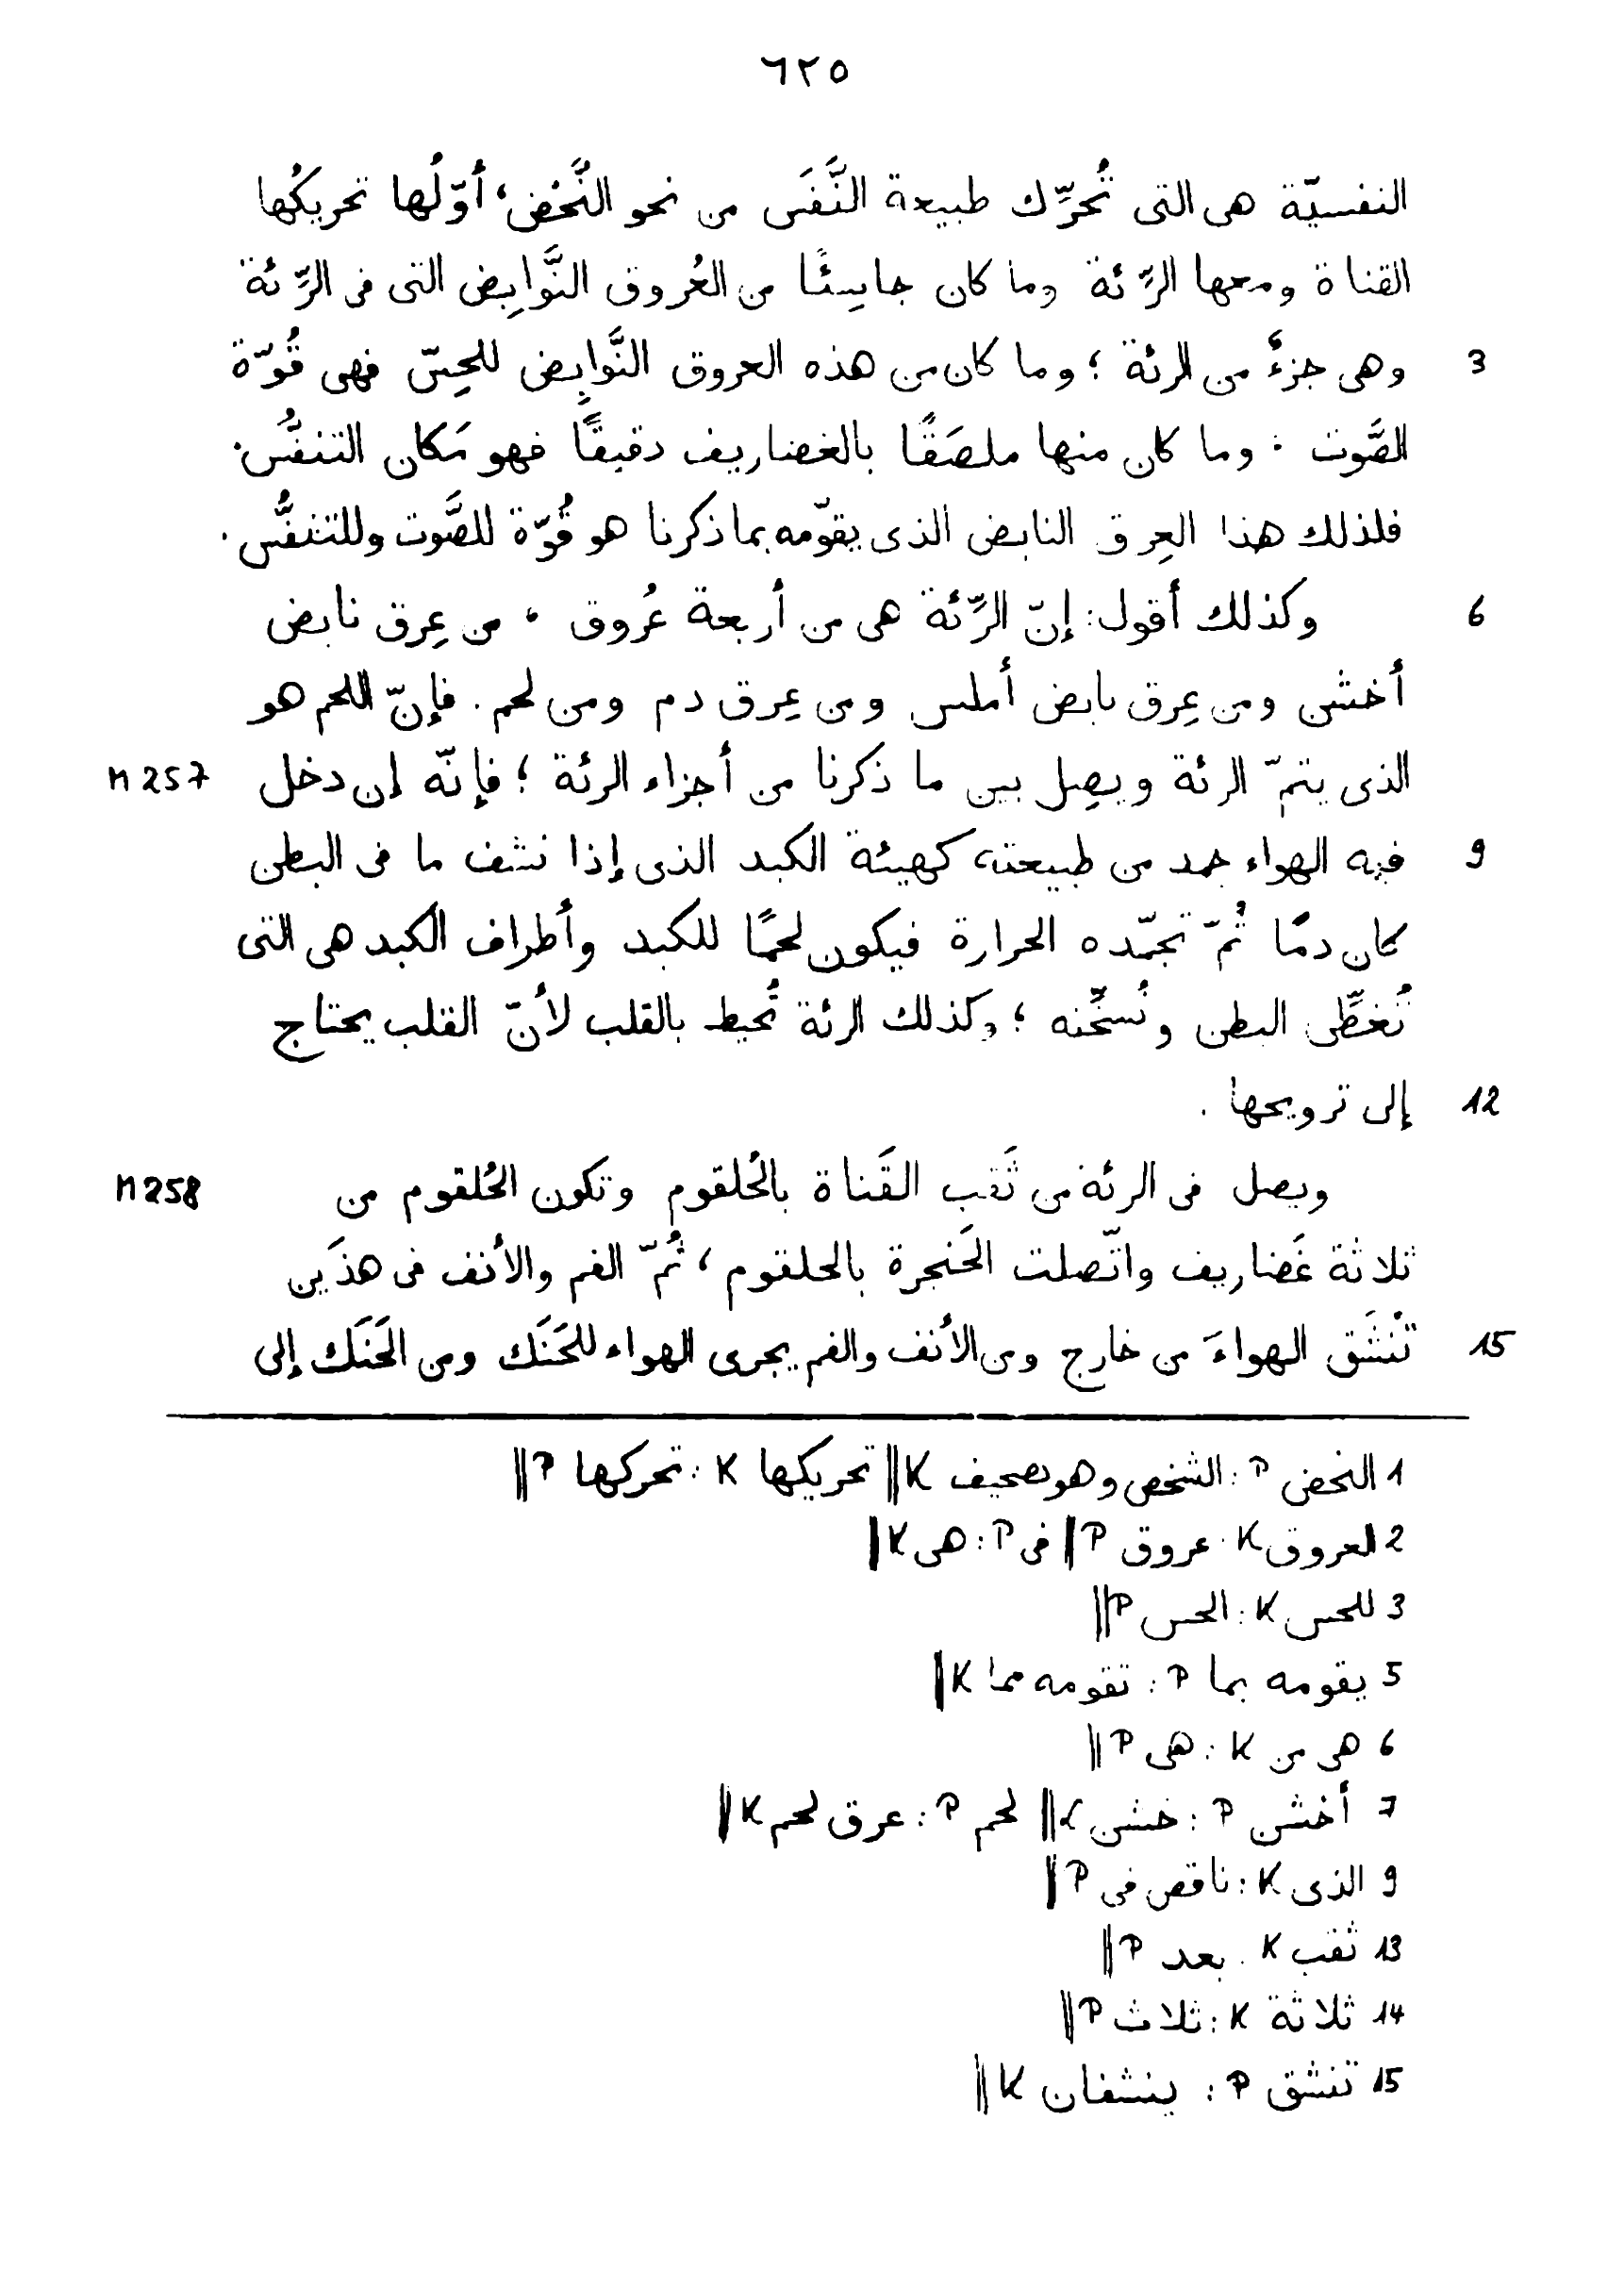 ٦٢٥
النفسيّة هى التى تُحرِّك طبيعة النَّفَس من نحو النَّحْض، أوّلُها تحريكُها
القناة ومعها الرِّئة وما كان جاسِئًا من العُروق النَّوابِض التى فى الرِّئة
3 وهى جزءٌ من الرئة ؛ وما كان من هذه العروق النَّوابِض للحِسّ فهى قُوّة
الصَّوت . وما كان منها ملصَقًا بالغضاريف دقيقًا فهو مَكان التنفُّس.
فلذلك هذا العِرق النابض الذى يقوّمه بما ذكرنا هو قُوّة للصَّوت وللتنفُّس .
6 وكذلك أقول: إنّ الرِّئة هى من أربعة عُروق ، من عِرق نابض
أخشن ومن عِرق نابض أملس ومن عِرق دم ومن لحم . فإنّ اللحم هو
الذى يتمّ الرئة ويصِل بين ما ذكرنا من أجزاء الرئة ؛ فإنّه إن دخل n 257
9 فيه الهواء جمد من طبيعته، كهيئة الكبد الذى إذا نشف ما فى البطن
كان دمًا ثُمّ تجمّده الحرارة فيكون لحمًا للكبد وأطراف الكبد هى التى
تُغطِّى البطن وتُسخِّنه ؛ وكذلك الرئة تُحيط بالقلب لأنّ القلب يحتاج
12 إلى ترويحها .
ويصل فى الرئة من ثَقب القَناة بالحُلقوم وتكون الحُلقوم من n 258
ثلاثة غَضاريف واتّصلت الحَنجرة بالحلقوم ، ثُمّ الفم والأنف فى هذَين
15 تَنْشَق الهواءَ من خارج ومن الأنف والفم يجرى الهواء للحَنَك ومن الحَنَك إلى
1 النحض P : الشخص وهو تصحيف K || تحريكها K : تحركها P ||
2 العروق K : عروق P || فى P : هى K ||
3 للحس K : الحس P ||
5 يقومه بما P : تقومه مما K ||
6 هى من K : هى P ||
7 أخشن P : خشن K || لحم P : عرق لحم K ||
9 الذى K : ناقص فى P ||
13 ثقب K : بعد P ||
14 ثلاثة K : ثلاث P ||
15 تنشق P : ينشفان K ||